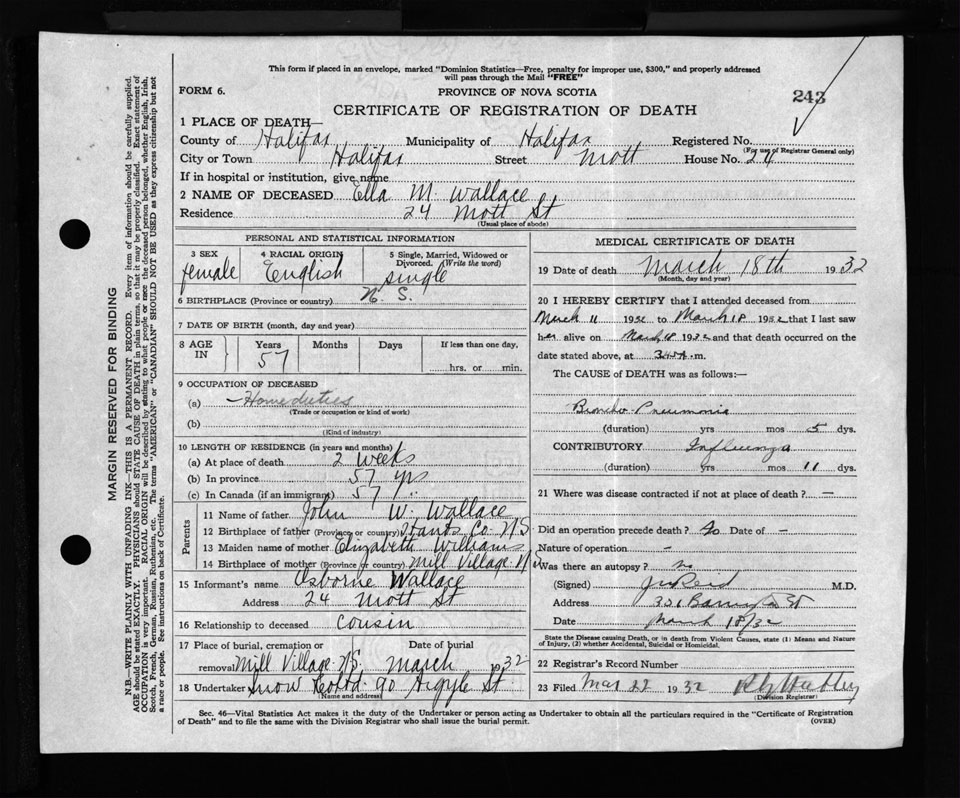 This form if placed in an envelope, marked "Dominion Statistics—Free, penalty for improper use, $300," and properly addressed
will pass through the Mail "FREE"
FORM 6. PROVINCE OF NOVA SCOTIA 243
CERTIFICATE OF REGISTRATION OF DEATH
1 PLACE OF DEATH—
County of Halifax Municipality of Halifax Registered No.
(For use of Registrar General only)
City or Town Halifax Street Mott House No. 24
If in hospital or institution, give name
2 NAME OF DECEASED Ella M. Wallace
Residence 24 Mott St
(Usual place of abode)
PERSONAL AND STATISTICAL INFORMATION
3 SEX 4 RACIAL ORIGIN 5 Single, Married, Widowed or
Divorced. (Write the word)
female English single
6 BIRTHPLACE (Province or country) N. S.
7 DATE OF BIRTH (month, day and year)
8 AGE IN Years Months Days If less than one day,
57 hrs. or min.
9 OCCUPATION OF DECEASED
(a) Home duties
(Trade or occupation or kind of work)
(b)
(Kind of industry)
10 LENGTH OF RESIDENCE (in years and months)
(a) At place of death 2 weeks
(b) In province 57 yrs
(c) In Canada (if an immigrant) 57 "
Parents
11 Name of father John W. Wallace
12 Birthplace of father (Province or country) Hants Co. N S
13 Maiden name of mother Elizabeth Williams
14 Birthplace of mother (Province or country) Mill Village N S
15 Informant's name Osborne Wallace
Address 24 Mott St
16 Relationship to deceased cousin
17 Place of burial, cremation or Date of burial
removal Mill Village N S. March 1932
18 Undertaker Snow Co Ltd 90 Argyle St
(Name and address)
MEDICAL CERTIFICATE OF DEATH
19 Date of death March 18th 1932
(Month, day and year)
20 I HEREBY CERTIFY that I attended deceased from
March 11 1932 to March 18 1932 that I last saw
her alive on March 18 1932 and that death occurred on the
date stated above, at 3.45 A. m.
The CAUSE of DEATH was as follows:—
Broncho-Pneumonia
(duration) yrs mos 5 dys.
CONTRIBUTORY Influenza
(duration) yrs mos 11 dys.
21 Where was disease contracted if not at place of death? —
Did an operation precede death? No Date of —
Nature of operation —
Was there an autopsy? no
(Signed) Reid M.D.
Address St
Date March 18/32
State the Disease causing Death, or in death from Violent Causes, state (1) Means and Nature
of Injury, (2) whether Accidental, Suicidal or Homicidal.
22 Registrar's Record Number
23 Filed Mar 22 1932
(Division Registrar)
Sec. 46—Vital Statistics Act makes it the duty of the Undertaker or person acting as Undertaker to obtain all the particulars required in the "Certificate of Registration
of Death" and to file the same with the Division Registrar who shall issue the burial permit. (OVER)
MARGIN RESERVED FOR BINDING
N.B.—WRITE PLAINLY WITH UNFADING INK—THIS IS A PERMANENT RECORD. Every item of information should be carefully supplied.
AGE should be stated EXACTLY. PHYSICIANS should STATE CAUSE OF DEATH in plain terms, so that it may be properly classified. Exact statement of
OCCUPATION is very important. RACIAL ORIGIN will be described by stating to what people or race the deceased person belonged, whether English, Irish,
Scotch, French, German, Russian, Ruthenian, etc. The terms "AMERICAN" or "CANADIAN" SHOULD NOT BE USED as they express citizenship but not
a race or people. See instructions on back of Certificate.